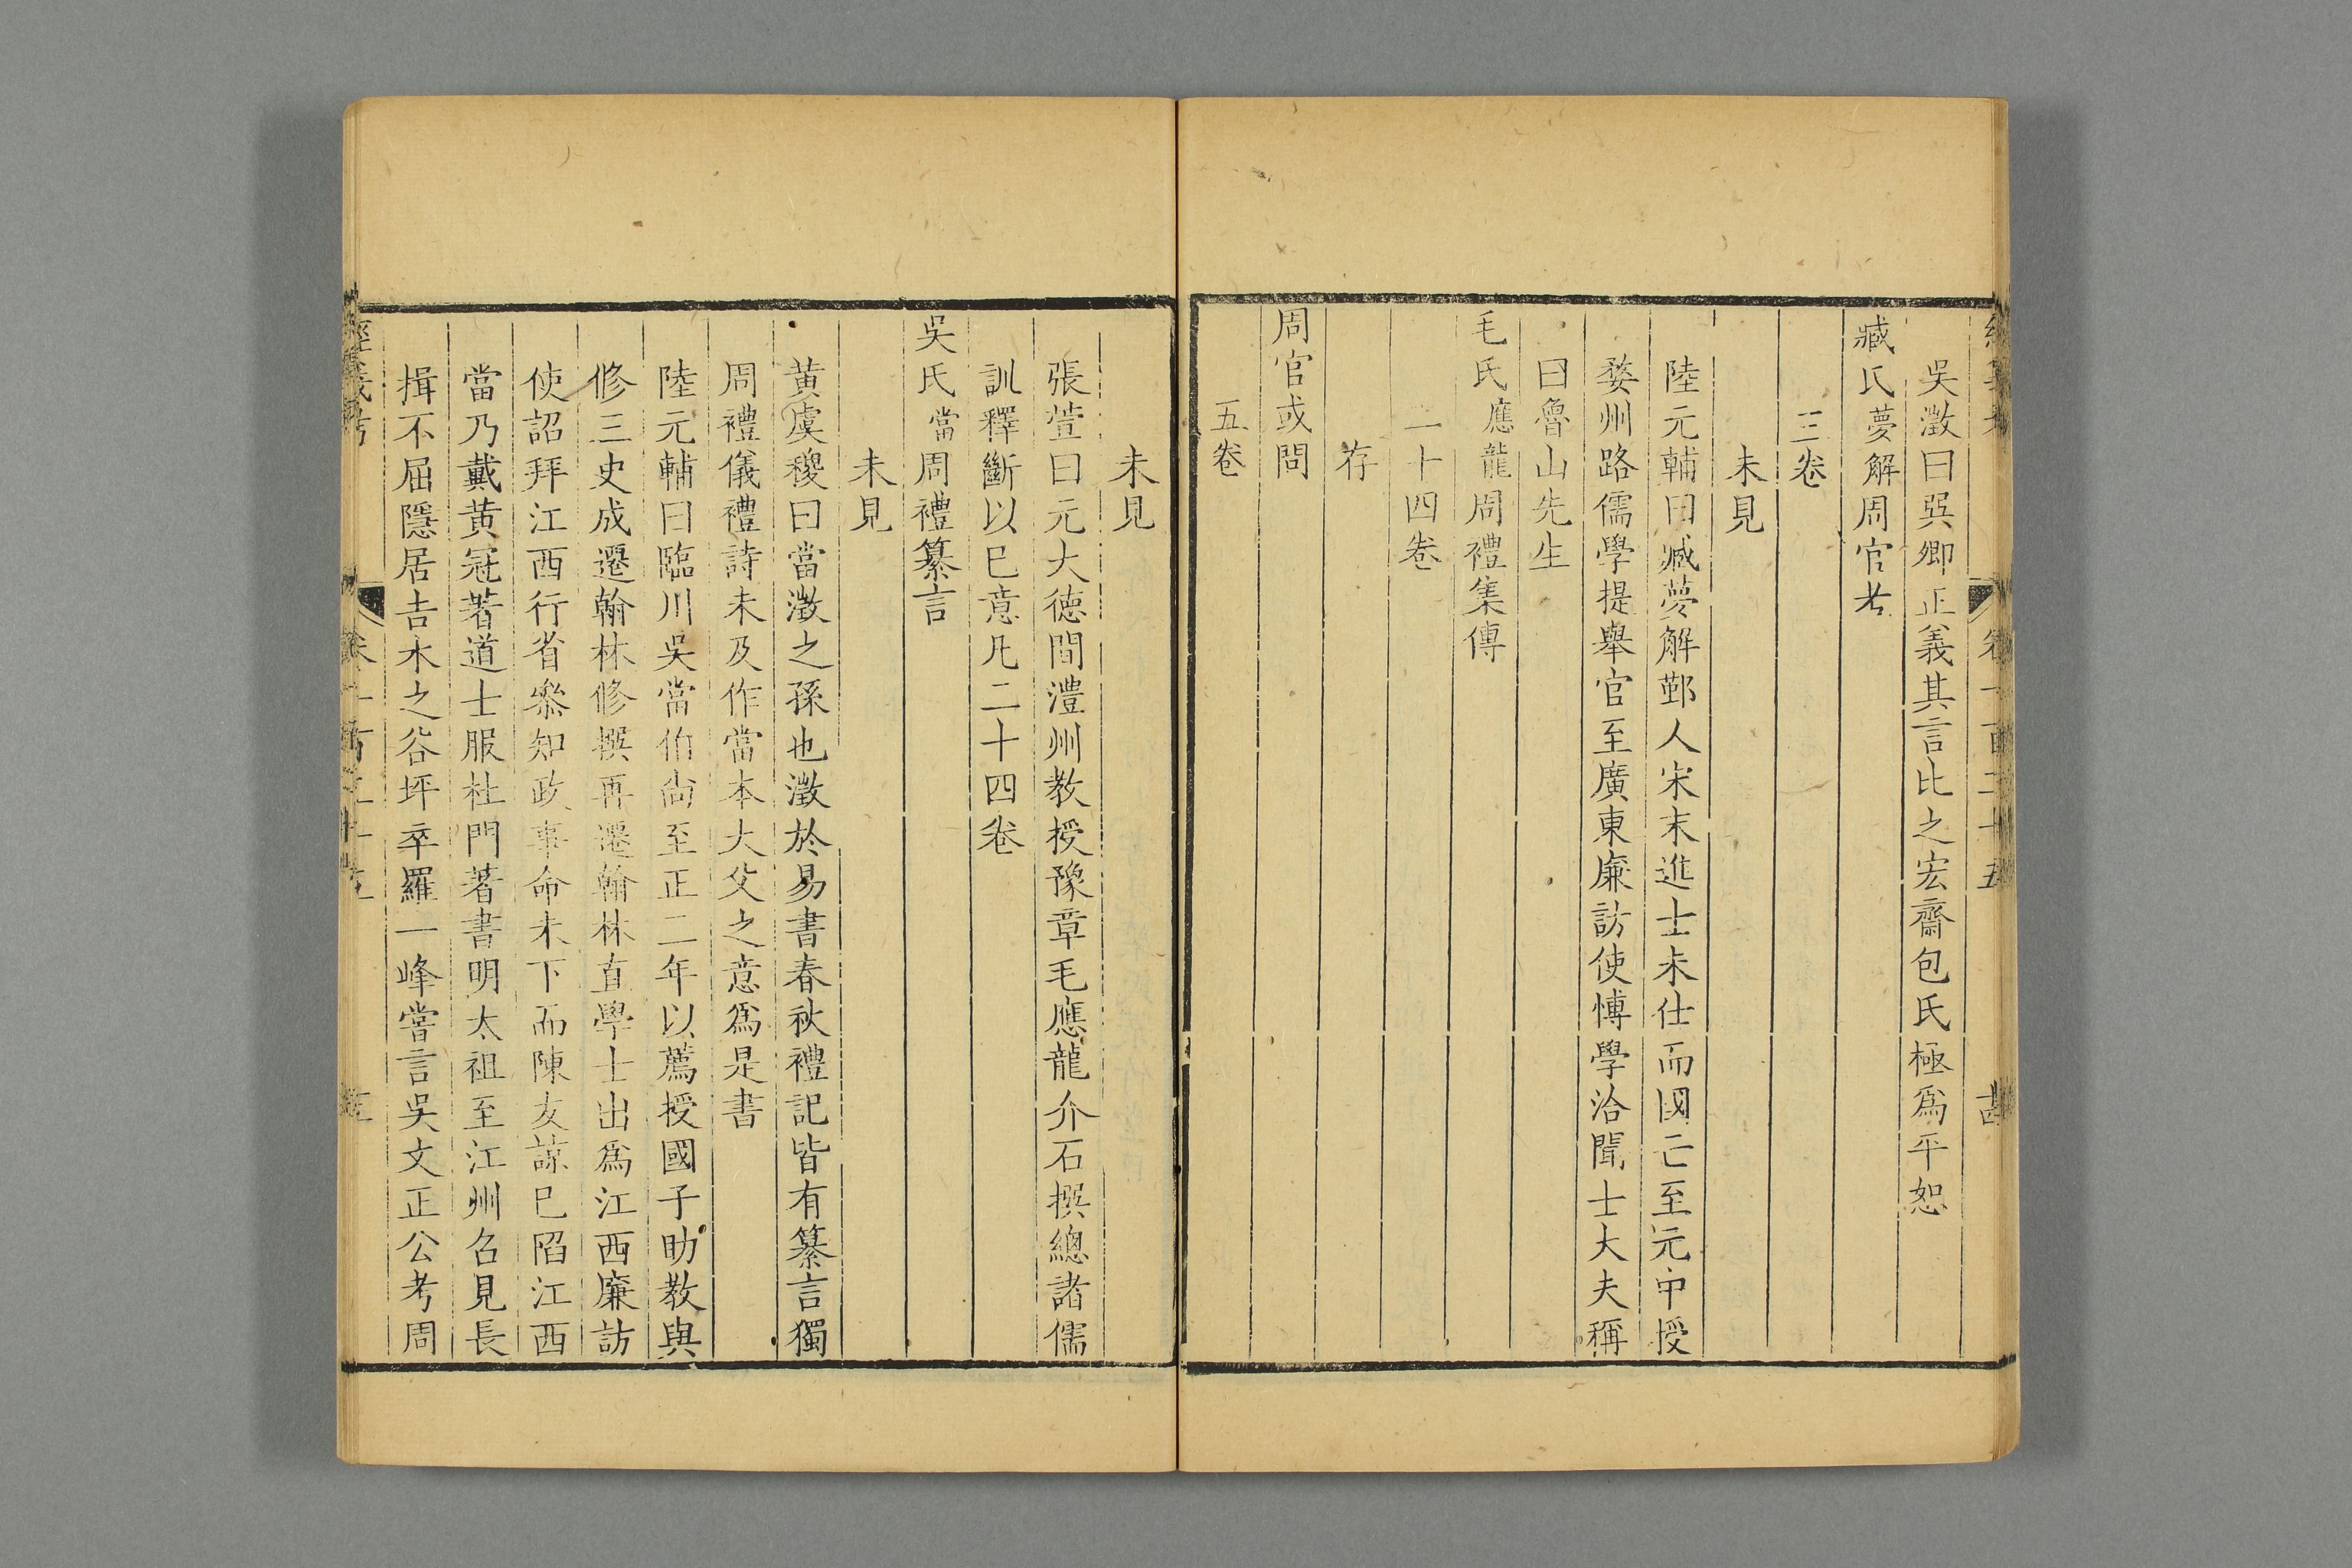 經義考
卷一百二十五
吳澂曰㢲卿正義其言比之宏齋包氏極爲平恕
臧氏夢解周官考
三卷
未見
陸元輔曰臧夢解鄞人宋末進士未仕而國亡至元中授
婺州路儒學提舉官至廣東廉訪使博學洽聞士大夫稱
曰魯山先生
毛氏應龍周禮集傳
二十四卷
存
周官或問
五卷
未見
張萱曰元大德間澧州教授豫章毛應龍介石撰總諸儒
訓釋斷以已意凡二十四卷
吳氏當周禮纂言
未見
黃虞稷曰當澂之孫也澂於易書春秋禮記皆有纂言獨
周禮儀禮詩未及作當本大父之意爲是書
陸元輔曰臨川吳當伯尚至正二年以薦授國子助教與
修三史成遷翰林修撰再遷翰林直學士出爲江西廉訪
使詔拜江西行省叅知政事命未下而陳友諒已陷江西
當乃戴黃冠著道士服杜門著書明太祖至江州召見長
揖不屈隱居吉水之谷坪卒羅一峰嘗言吳文正公考周
經義考
卷一百二十五